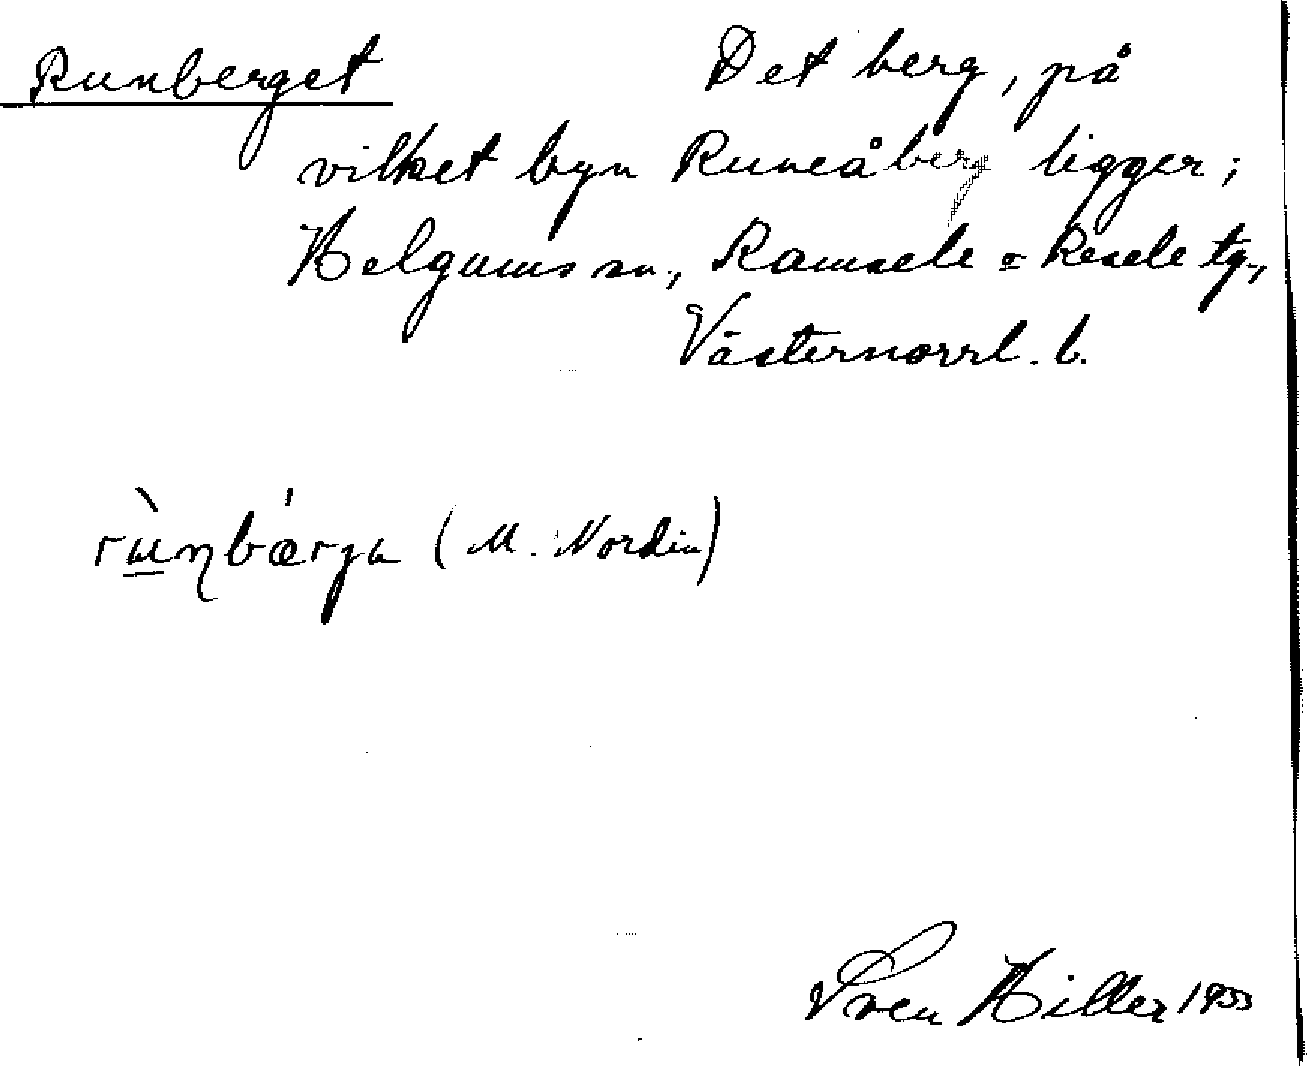 Runberget Det berg, på
vilket byn Runeåberg ligger;
Helgums sn., Ramsele o Resele tg.,
Västernorrl. l.
rùn̡bærga (M. Nordin)
Sven Hiller 1933